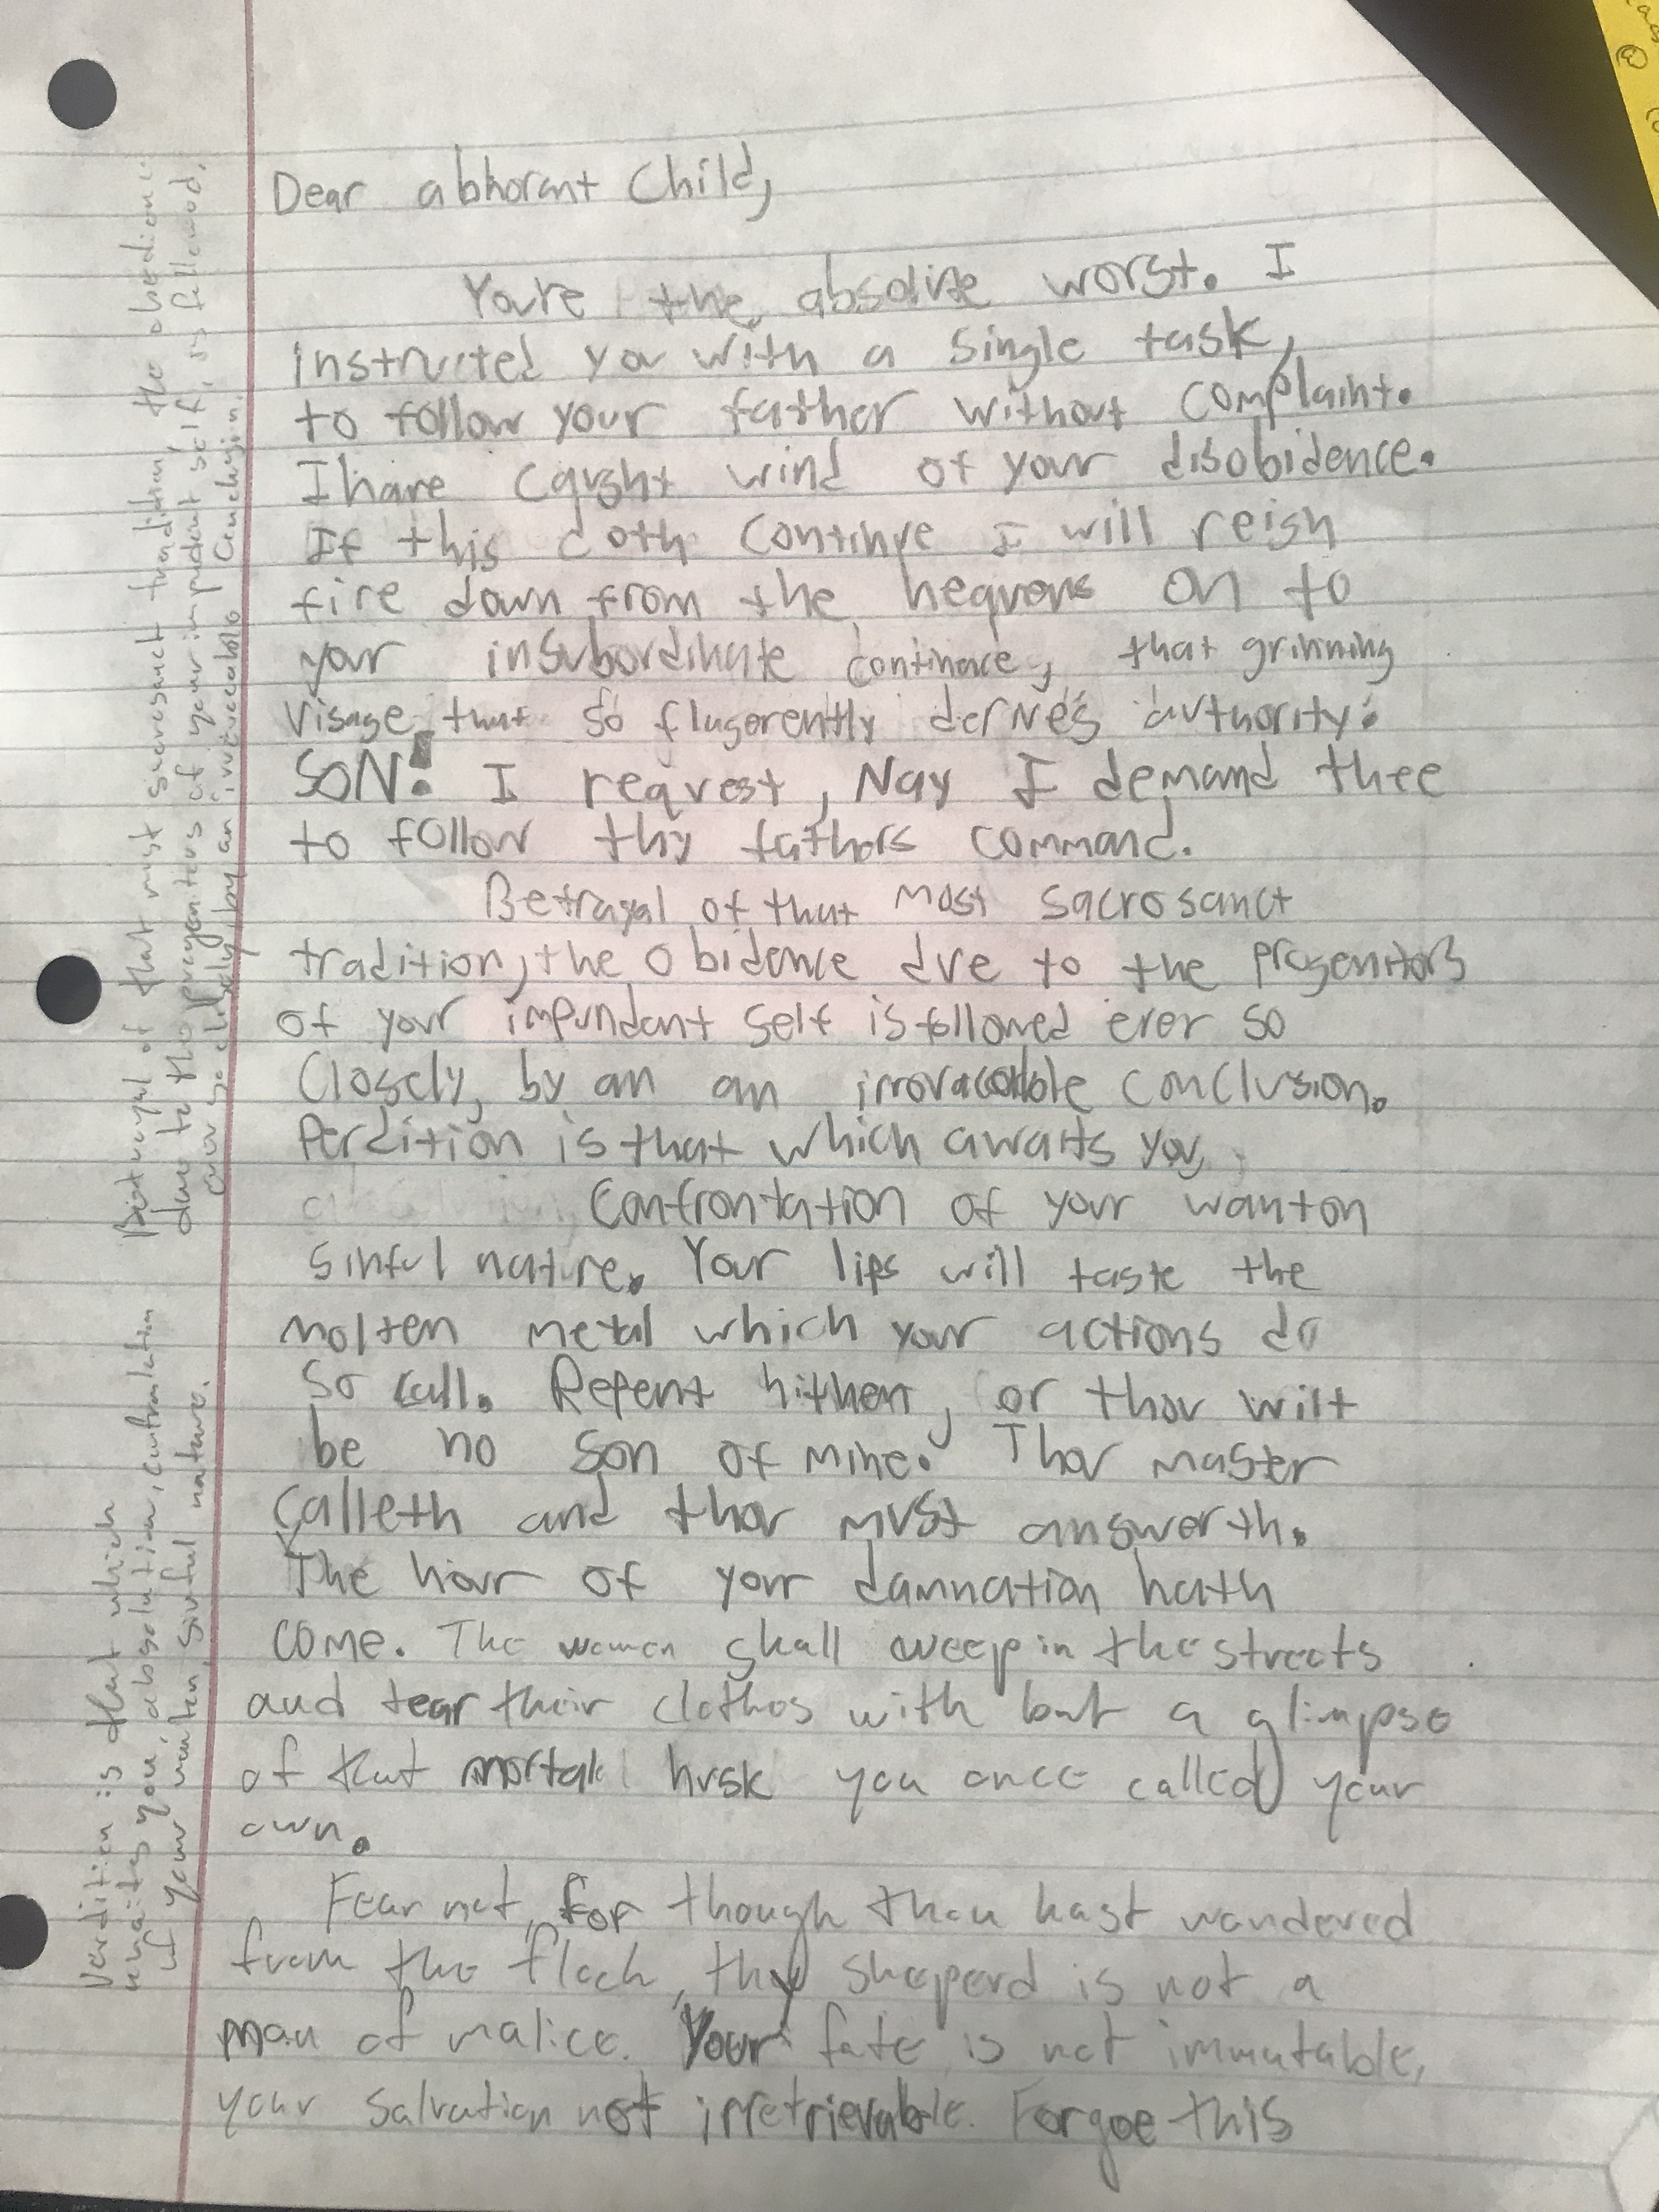 Dear abhorant Child,
Youre the absolute worst. I
instructed you with a single task,
to follow your father without complaint.
I have caught wind of your disobidence.
If this doth continue I will reign
fire down from the heavens on to
your insubordinate continace, that grinning
visage that so flagerently defines authority.
SON! I request, Nay I demand thee
to follow thy fathers command.
Betrayal of that most sacrosanct
tradition, the obidence due to the progenitors
of your impundant self is followed ever so
Closely, by an an irrovacable conclusion.
Perdition is that which awaits you,
Confrontation of your wanton
sinful nature. Your lips will taste the
molten metal which your actions do
so call. Repent hithen, or thou wilt
be no son of mine. Thou master
calleth and thou must answerth.
The hour of your damnation hath
come. The women shall weep in the streets
and tear their clothes with but a glimpse
of that mortal husk you once called your
own.
Fear not, for though thou hast wandered
from the flock, thy sheperd is not a
man of malice. Your fate is not immutable,
your salvation not irretrievable. Forgoe this
Betrayal of that most sacrosanct tradition, the obedience
due to the progenitors of your impudent self, is followed,
ever so closely by an irrevocable conclusion.
Perdition is that which
awaits you, absolution, confrontation
of your wanton, sinful nature.